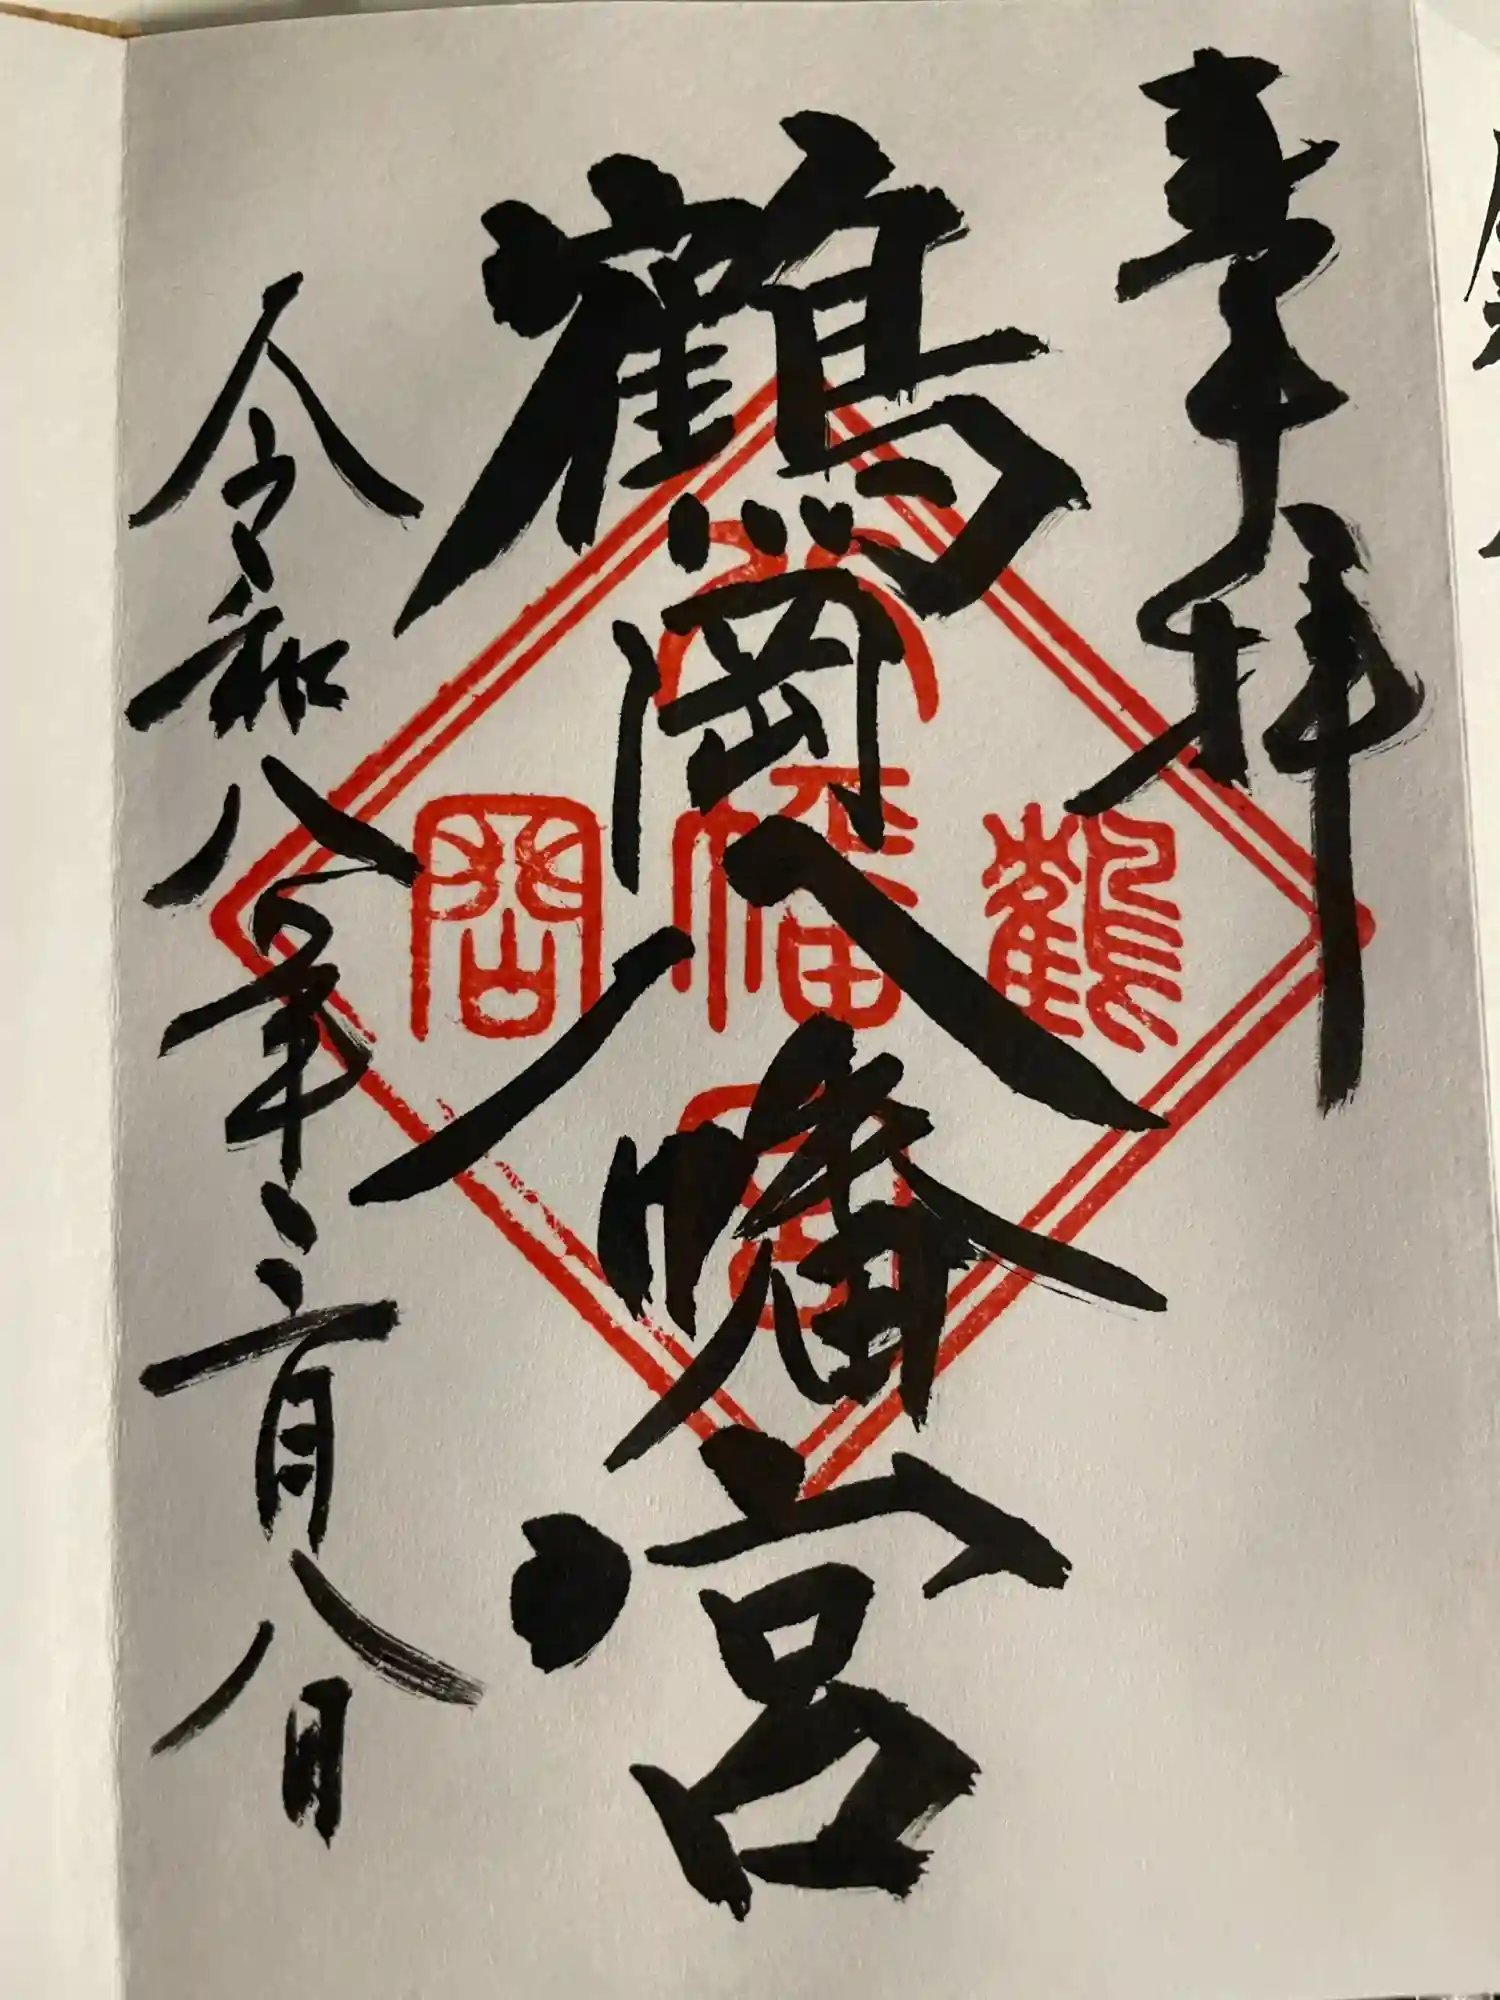 奉拝
鶴岡八幡宮
令和八年三月八日
鶴岡
八幡宮